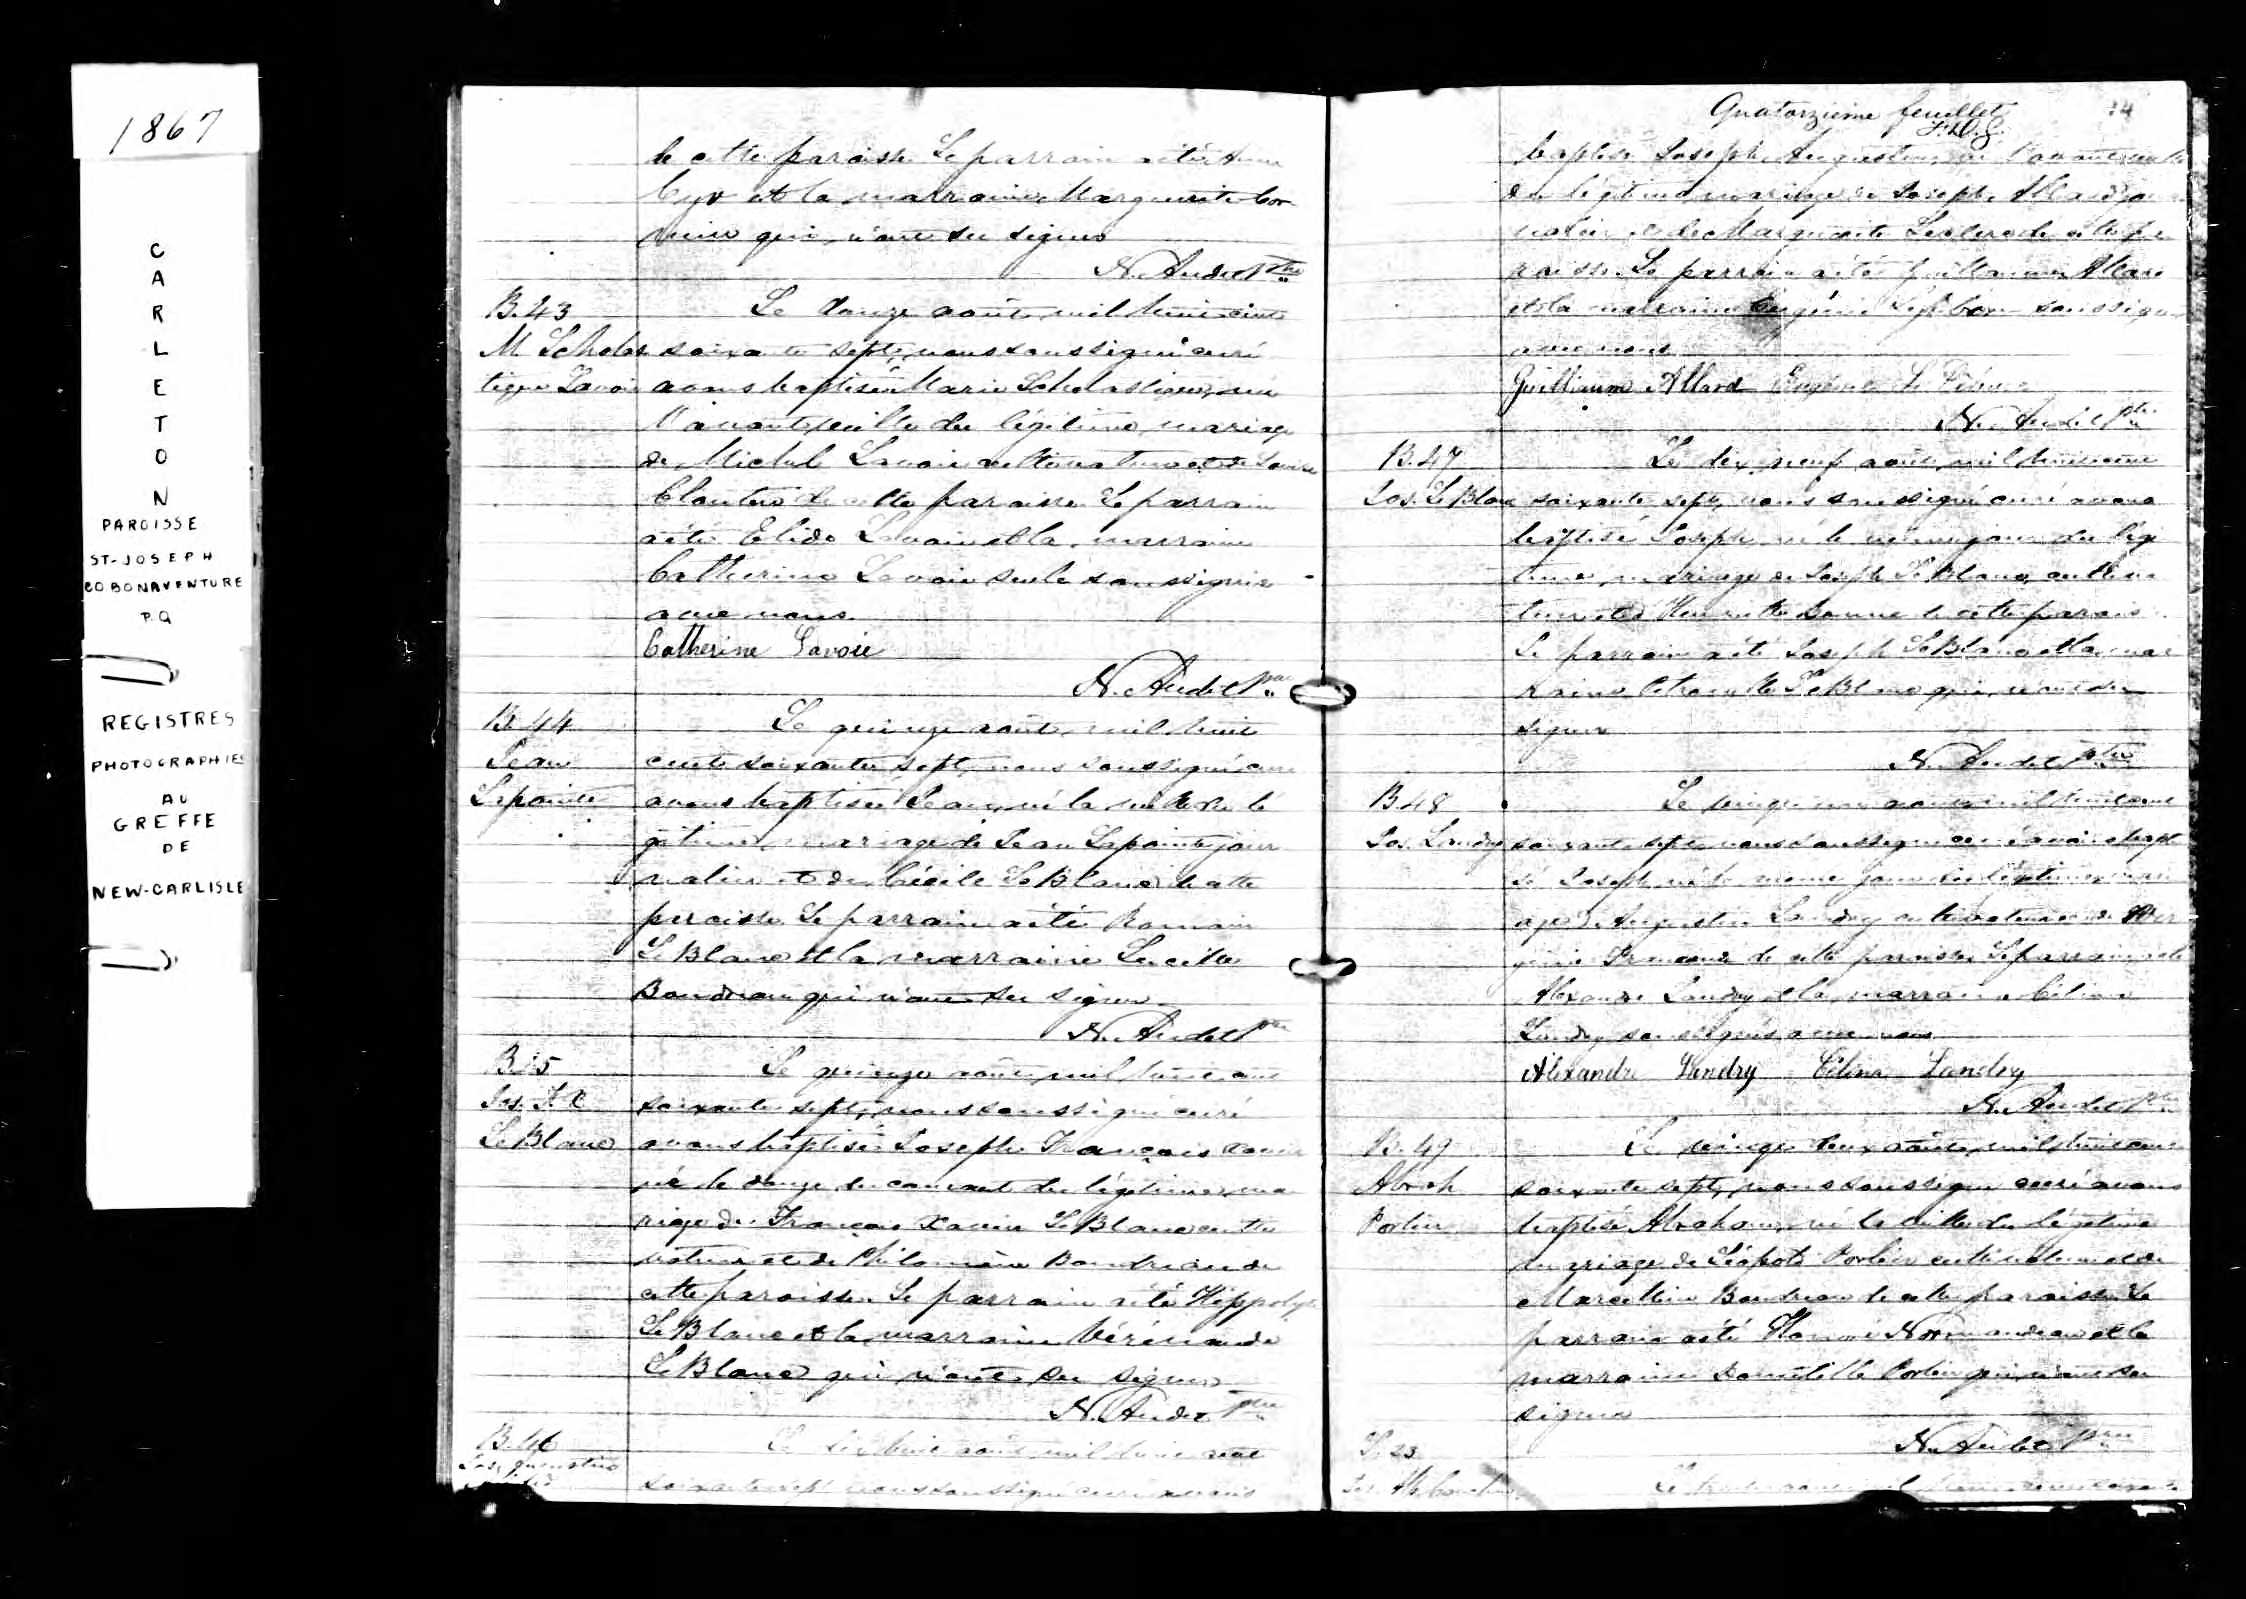 1867
CARLETON
PAROISSE
ST-JOSEPH
CO. BONAVENTURE
P.Q
REGISTRES
PHOTOGRAPHIES
AU
GREFFE
DE
NEW-CARLISLE
de cette paroisse Le parrain a été
Cyr et la marraine Marguerite Cor
mier qui n'ont su signer
N. Audet Ptre
B.43
M Scholas
tique Lavoie
Le douze août mil huit cent
soixante sept, nous soussigné curé
avons baptisé Marie Scholastique, née
l'avant veille du légitime mariage
de Michel Lavoie cultivateur et de Louise
Cloutier de cette paroisse Le parrain
a été Elide Lavoie et la marraine
Catherine Lavoie seule soussignée
avec nous.
Catherine Lavoie
N. Audet Ptre
B.44
Jean
Lapointe
Le quinze août mil huit
cent soixante sept, nous soussigné curé
avons baptisé Jean, né la veille du lé
gitime mariage de Jean Lapointe jour
nalier et de Cécile LeBlanc de cette
paroisse Le parrain a été Romain
LeBlanc et la marraine Lucille
Boudreau qui n'ont su signer
N. Audet Ptre
B.45
Jos. F. X.
LeBlanc
Le quinze août mil huit cent
soixante sept, nous soussigné curé
avons baptisé Joseph François Xavier
né le douze du courant du légitime ma
riage de François Xavier LeBlanc culti
vateur et de Philomène Boudreau de
cette paroisse. Le parrain a été Hippolyte
LeBlanc et la marraine Vérénande
LeBlanc qui n'ont su signer
N. Audet Ptre
B.46
Jos. Augustin
Le dix huit août mil huit cent
soixante sept nous soussigné curé avons
Quatorzième feuillet
14
baptisé Joseph Augustin, né l'avant veille
du légitime mariage de Joseph Allard jour
nalier et de Marguerite Leclerc de cette pa
roisse. Le parrain a été Guillaume Allard
et la marraine Eugénie soussignés
avec nous
Guilliaume Allard Eugénie
N. Audet Ptre
B.47
Jos. LeBlanc
Le dix neuf août mil huit cent
soixante sept, nous soussigné curé avons
baptisé Joseph né le même jour du légi
time mariage de Joseph LeBlanc, cultiva
teur et de Henriette de cette paroisse
Le parrain a été Joseph LeBlanc et la mar
raine LeBlanc qui n'ont su
signer
N. Audet Ptre
B.48
Jos. Landry
Le vingt un août mil huit cent
soixante sept nous soussigné curé avons bapti
sé Joseph né le même jour du légitime mari
age d'Augustin Landry cultivateur et de Vir
ginie de cette paroisse Le parrain a été
Alexandre Landry et la marraine Célina
Landry soussignés avec nous
Alexandre Landry Célina Landry
N. Audet Ptre
B.49
Abrah
Porlier
Le vingt deux août mil huit cent
soixante sept, nous soussigné curé avons
baptisé Abraham, né la veille du légitime
mariage de Léopold Porlier cultivateur et de
Marcelline Boudreau de cette paroisse Le
parrain a été Honoré Normandeau et la
marraine Domitille Porlier qui n'ont su
signer
N. Audet Ptre